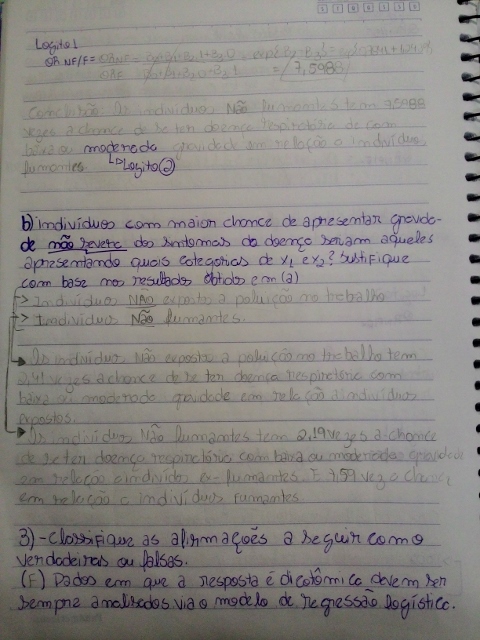 Logito 1
OR NF/F =
= 7,5988
Conclusão: Os indivíduos Não fumantes tem 7,5988
vezes a chance de se ter doença respiratória de com
baixa ou moderada gravidade em relação a indivíduos
fumantes. Logito 2
b) Indivíduos com maior chance de apresentar gravida-
de não severa dos sintomas da doença seriam aqueles
apresentando quais categorias de x1 e x2? Justifique
com base nos resultados obtidos em (a)
-> Indivíduos NÃO exposto a poluição no trabalho
-> Indivíduos Não fumantes.
Os indivíduos Não exposto a poluição no trabalho tem
vezes a chance de se ter doença respiratória com
baixa ou moderada gravidade em relação a indivíduos
expostos.
Os indivíduos Não fumantes tem 2,19 vezes a chance
de se ter doença respiratória com baixa ou moderada gravidade
em relação a indivíduos ex-fumantes. E 7,59 vez a chance
em relação a indivíduos fumantes
3) - Classifique as afirmações a seguir como
verdadeiras ou falsas.
(F) Dados em que a resposta é dicotômica devem ser
sempre analisados via o modelo de regressão logística.